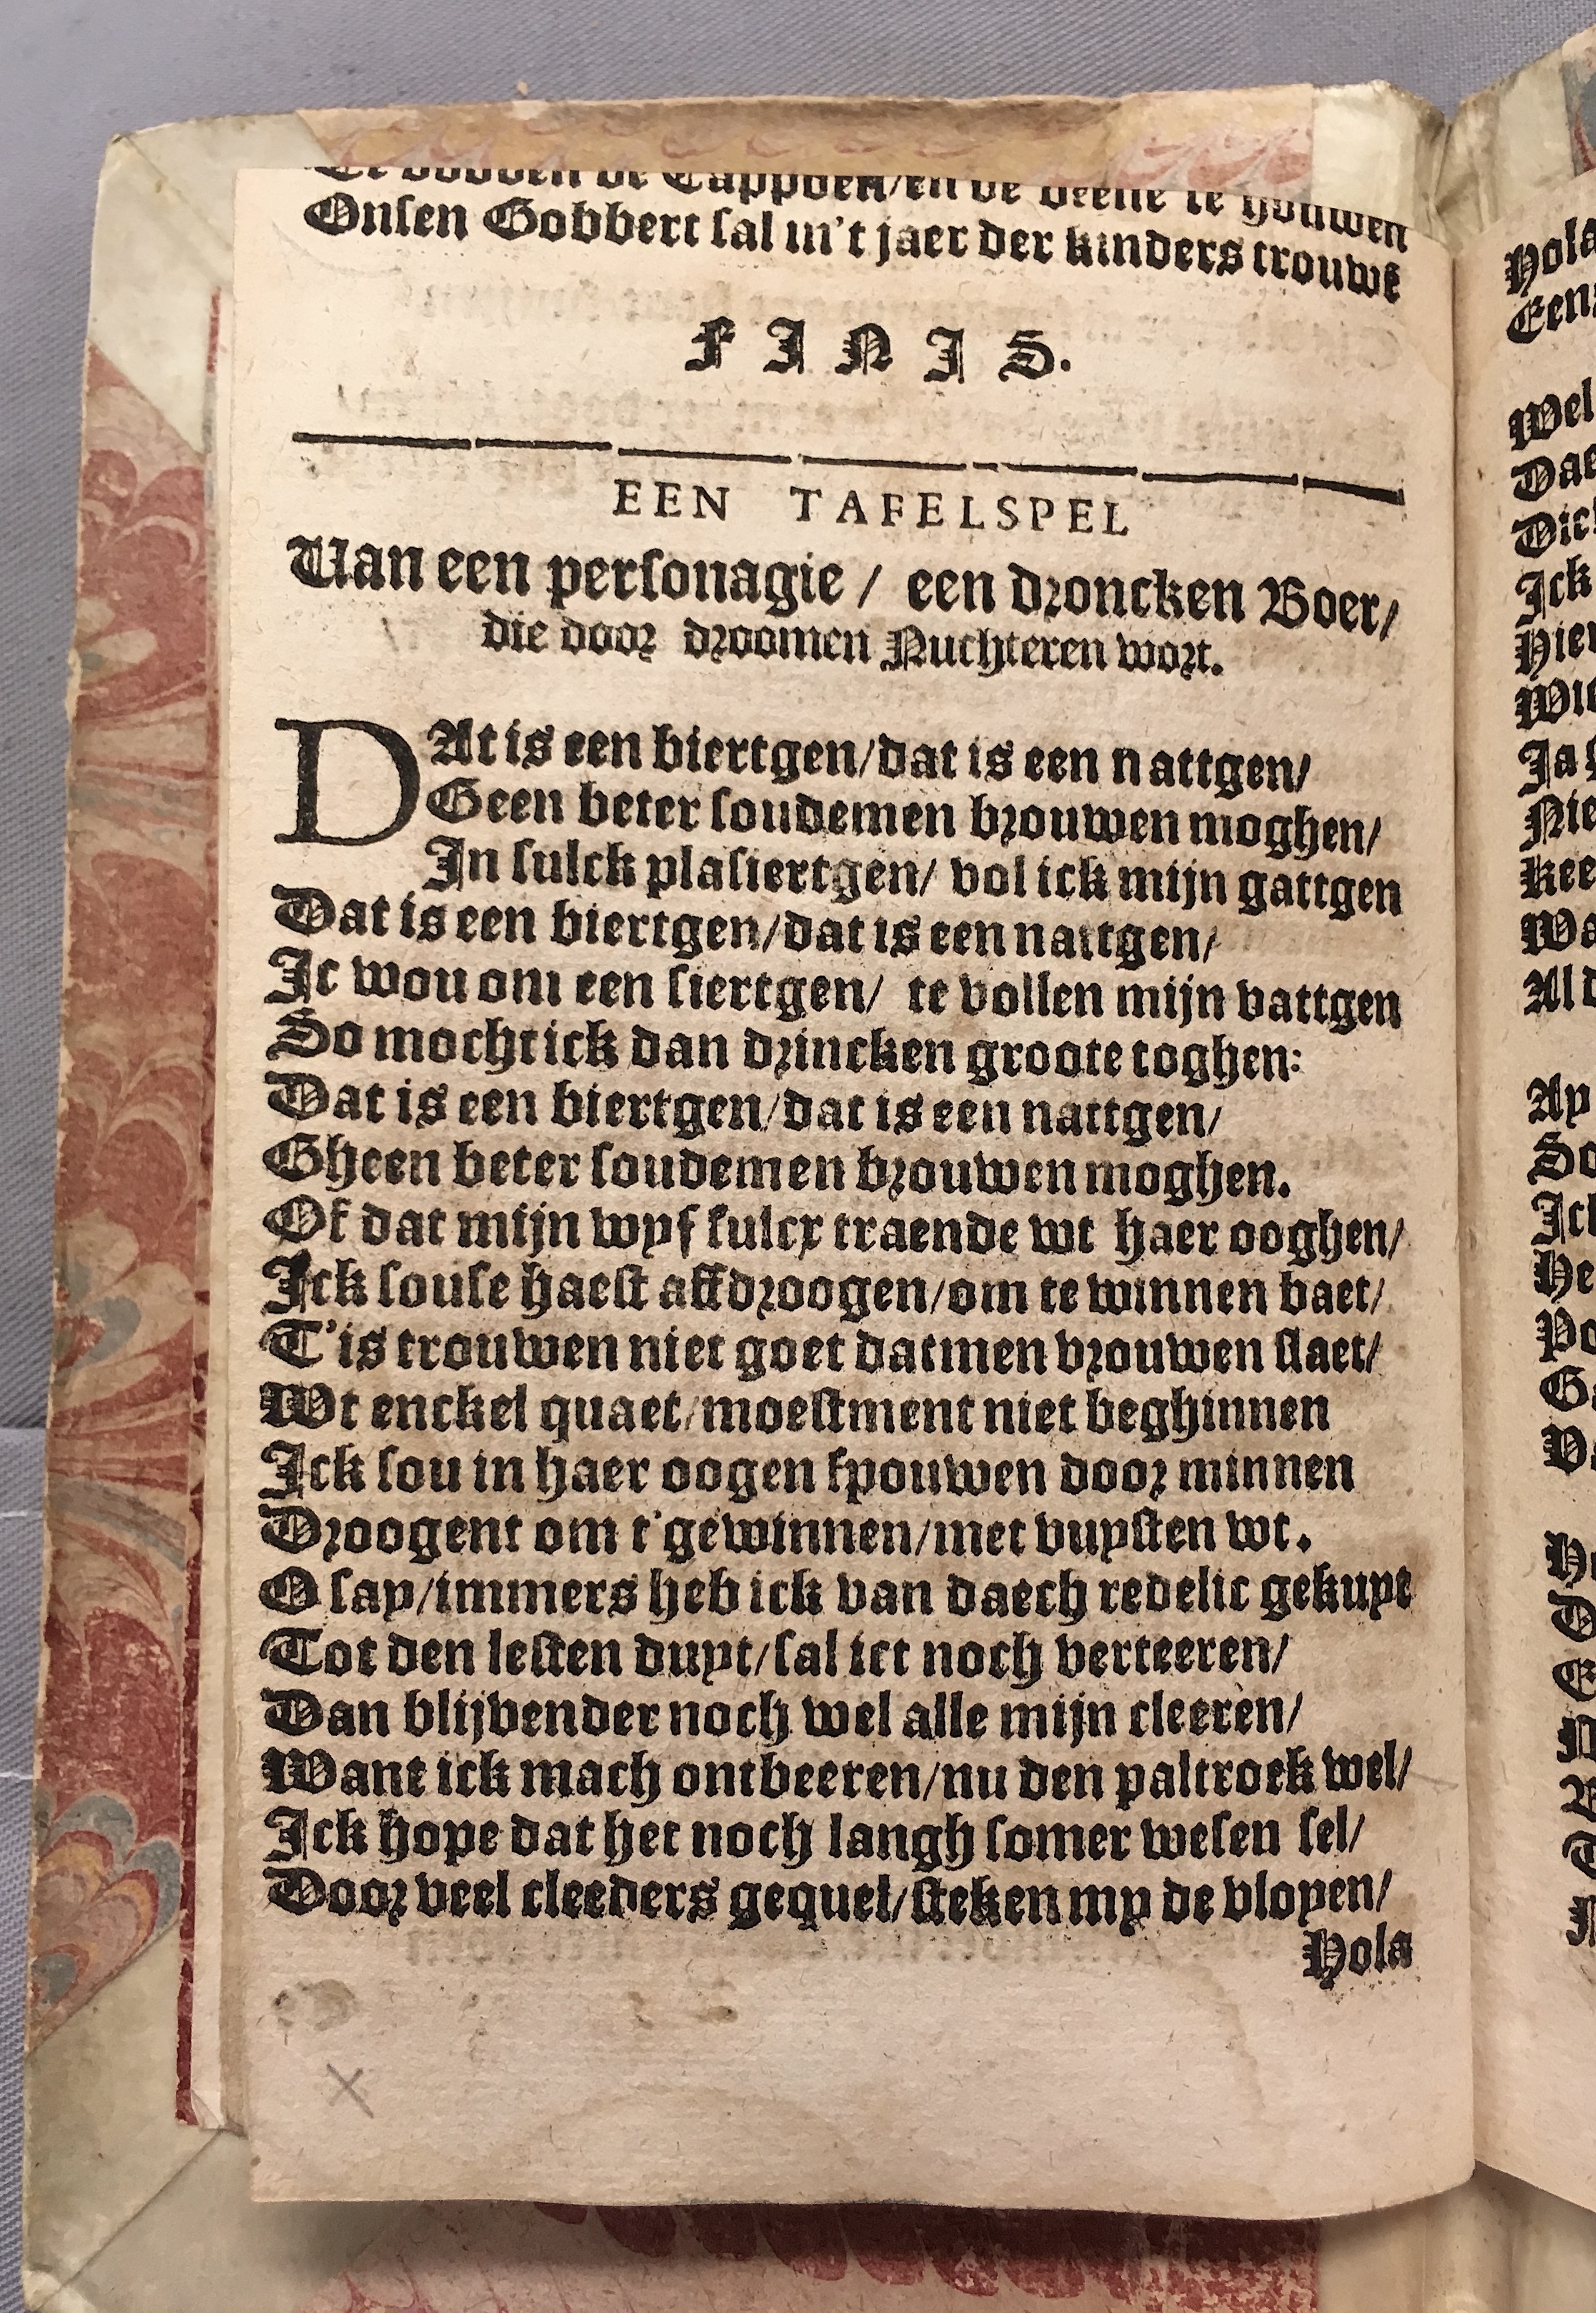 de Cappoen/en de beelie te houwen
Onsen Gobbert sal in't jaer der kinders trouwē
FINIS.
EEN TAFELSPEL
Van een personagie / een droncken Boer/
die door droomen Nuchteren wort.
DAt is een biertgen/dat is een nattgen/
Geen beter soudemen brouwen moghen/
In sulck plasiertgen/ vol ick mijn gattgen
Dat is een biertgen/dat is een nattgen/
Ic wou om een siertgen/ te vollen mijn vattgen
So mocht ick dan drincken groote toghen:
Dat is een biertgen/dat is een nattgen/
Gheen beter soudemen brouwen moghen.
Of dat mijn wyf sulcx traende wt haer ooghen/
Ick souse haest affdroogen/om te winnen baet/
T'is trouwen niet goet datmen vrouwen slaet/
Wt enckel quaet/moestment niet beghinnen
Ick sou in haer oogen spouwen door minnen
Droogent om t'gewinnen/met vuysten wt.
O say/immers heb ick van daech redelic gekuyt
Tot den lesten duyt/sal ict noch verteeren/
Dan blijvender noch wel alle mijn cleeren/
Want ick mach ontbeeren/nu den paltrock wel/
Ick hope dat het noch langh somer wesen sel/
Door veel cleeders gequel/steken my de vloyen/
Hola
Hola
Wel
Ick
Ja